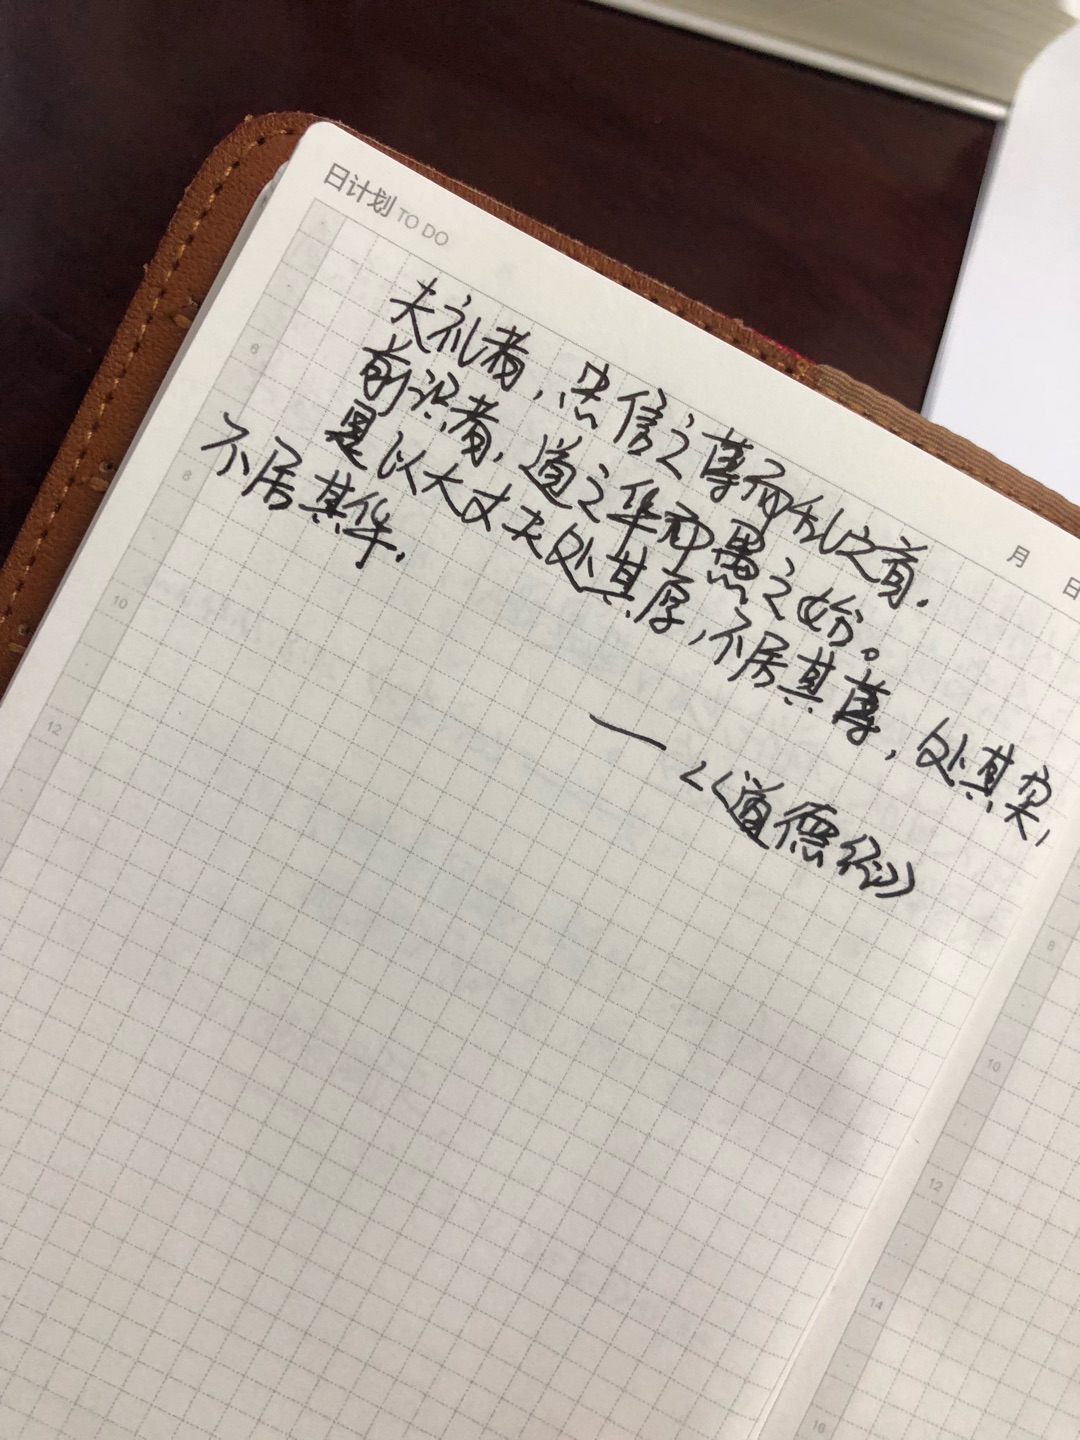 日计划 TO DO
夫礼者，忠信之薄而乱之首.
前识者，道之华而愚之始。
是以大丈夫处其厚，不居其薄，处其实，
不居其华.
——《道德经》
6
8
10
12
月 日
8
10
12
14
16